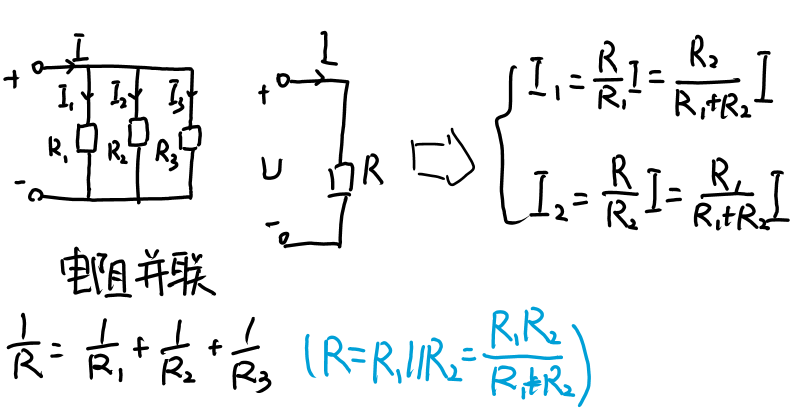 I I
+ I₁ I₂ I₃ +
R₁ R₂ R₃ U R
- -
I₁ = R/R₁ I = R₂/(R₁+R₂) I
I₂ = R/R₂ I = R₁/(R₁+R₂) I
电阻并联
1/R = 1/R₁ + 1/R₂ + 1/R₃ (R = R₁//R₂ = R₁R₂/(R₁+R₂))